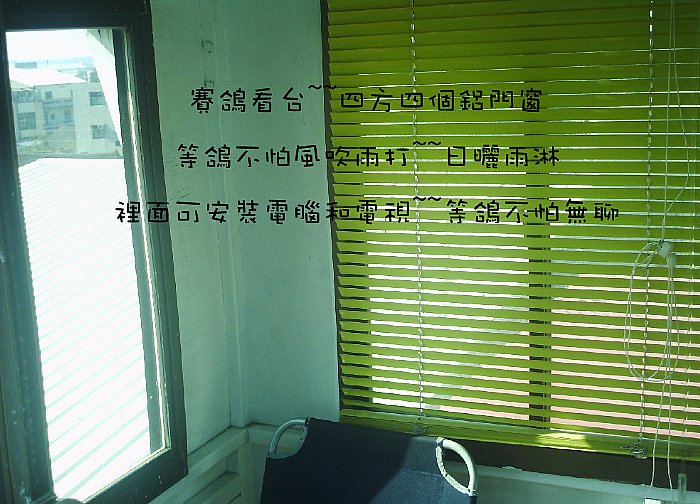 賽鴿看台~~四方四個鋁門窗
等鴿不怕風吹雨打~~日曬雨淋
裡面可安裝電腦和電視~~等鴿不怕無聊